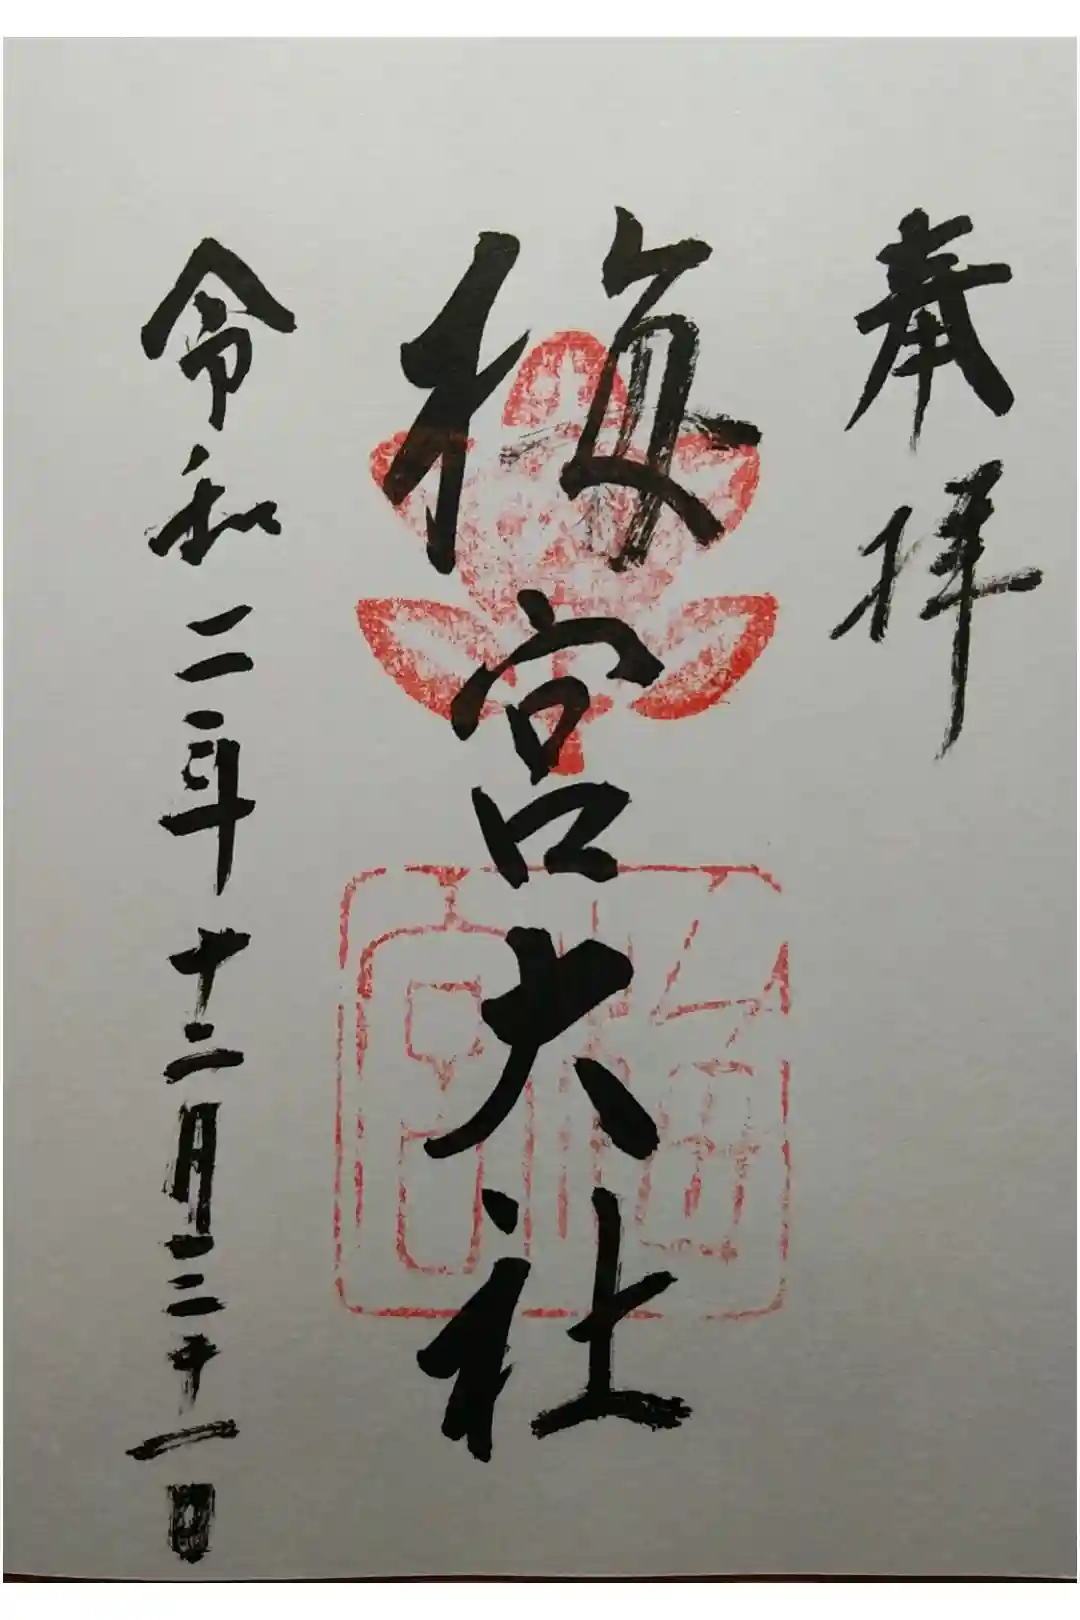 奉拝
梅宮大社
令和二年十二月三十一日
梅宮